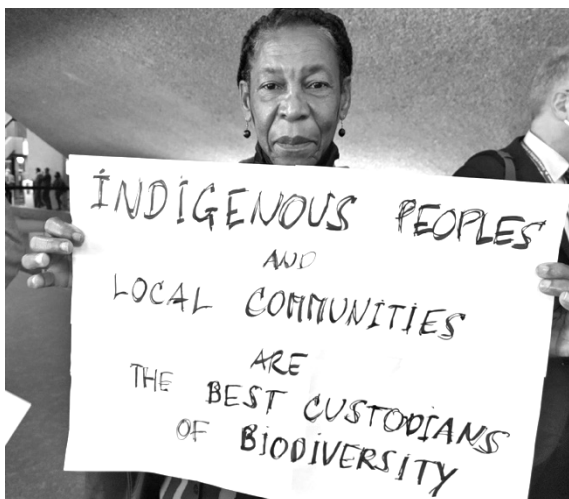 INDIGENOUS PEOPLES
AND
LOCAL COMMUNITIES
ARE
THE BEST CUSTODIANS
OF BIODIVERSITY